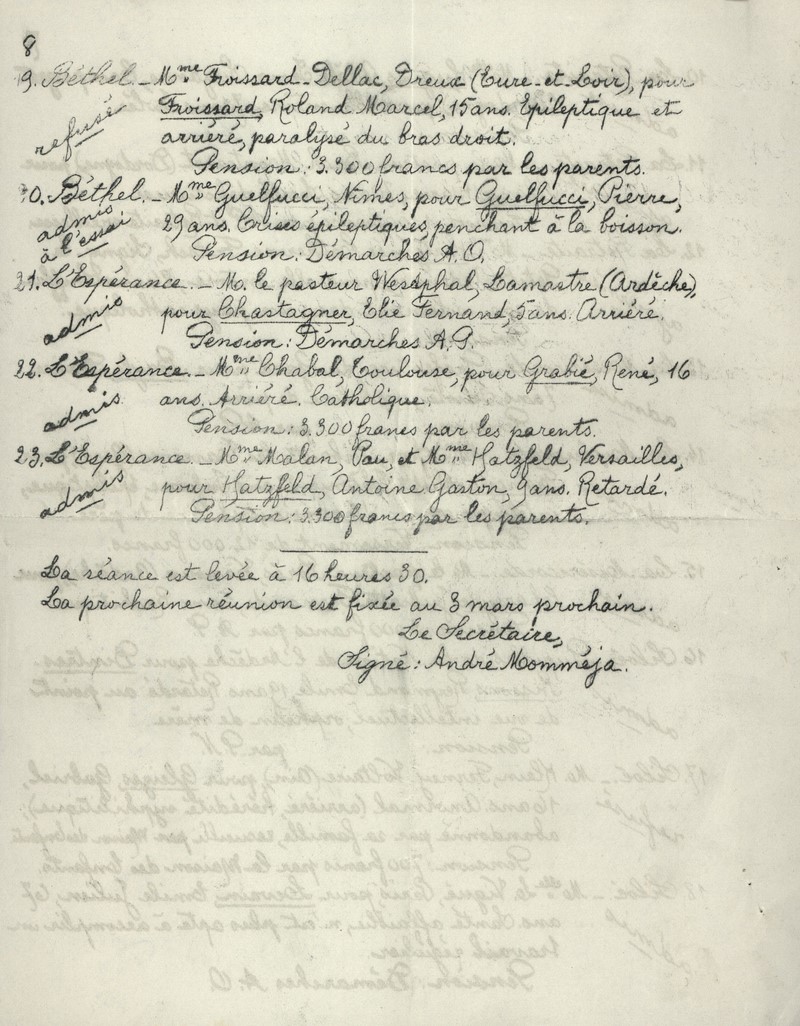 8
19. Béthel. - Mme Froissard-Dellac, Dreux (Eure-et-Loir), pour
refusé
Froissard, Roland Marcel, 15 ans. Epileptique et
arriéré, paralysé du bras droit.
Pension : 3.300 francs par les parents.
20. Béthel. - Mme Guelfucci, Nîmes, pour Guelfucci, Pierre,
admis
à l'essai
29 ans. Crises épileptiques, penchant à la boisson.
Pension : Démarches A.O.
21. L'Espérance. - M. le pasteur Westphal, Lamastre (Ardèche),
admis
pour Chastagner, Elie Fernand, 5 ans. Arriéré.
Pension : Démarches A.P.
22. L'Espérance. - Mme Chabal, Toulouse, pour Grabié, René, 16
admis
ans. Arriéré. Catholique.
Pension : 3.300 francs par les parents.
23. L'Espérance. - Mme Malan, Pau, et Mme Hatzfeld, Versailles,
admis
pour Hatzfeld, Antoine Gaston, 9 ans. Retardé.
Pension : 3.300 francs par les parents.
La séance est levée à 16 heures 30.
La prochaine réunion est fixée au 3 mars prochain.
Le Secrétaire,
Signé : André Momméja.